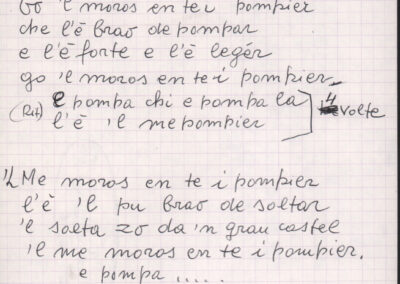 Gò 'l moros en te i pompier
che l'è brao de pompar
e l'è forte e l'è legér
go 'l moros en te i pompier
(Rit) e pompa chi e pompa la
l'è 'l me pompier ] 4 volte
'L Me moros en te i pompier
l'è 'l pu brao de soltar
'l salta zo da 'n gran castel
'l me moros en te i pompier.
e pompa .....